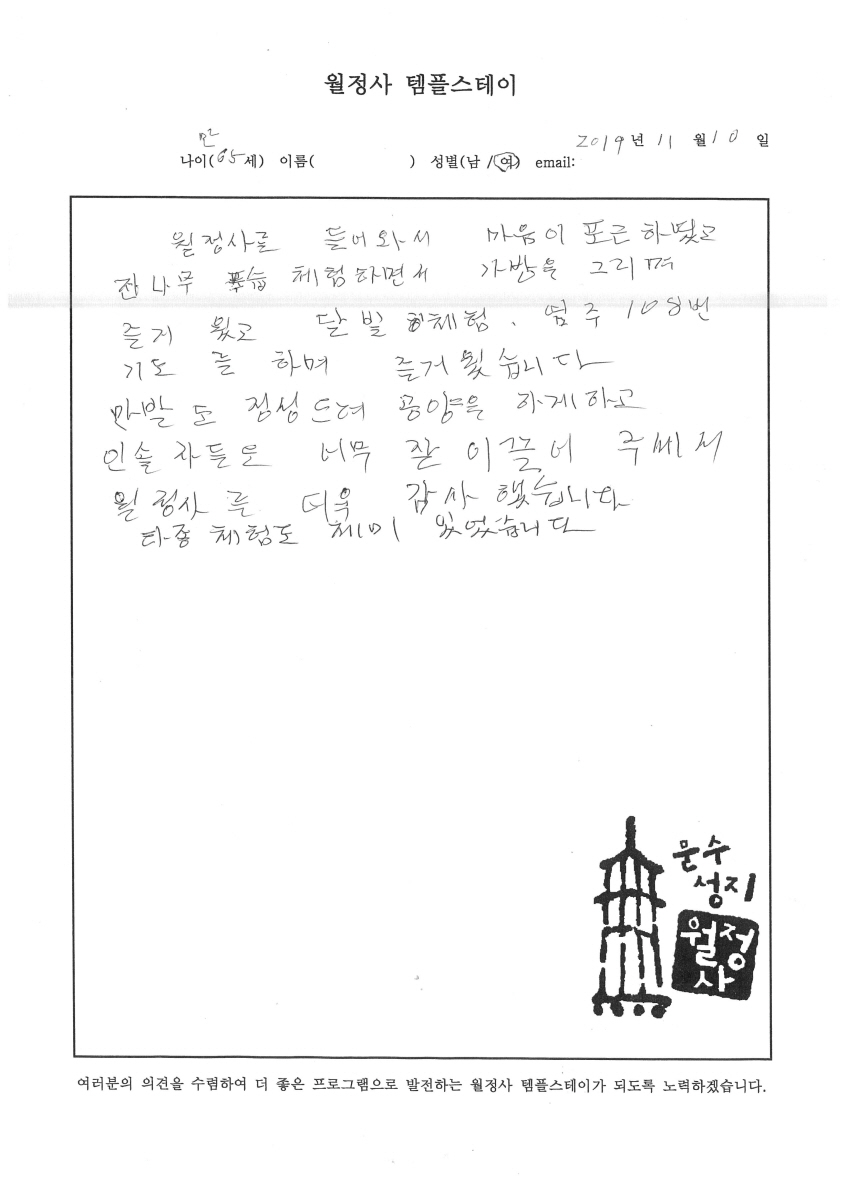 월정사 템플스테이
2019년 11월 10일
만
나이(65세) 이름( ) 성별(남 /여) email:
월정사를 들어와서 마음이 포근 하띻고
잔나무 숲 체험하면서 가방을 그리며
즐거 웠고 달빛 체험. 염주 108번
기도 를 하며 즐거 윛습니다
정성 드려 공양을 하게하고
인솔 자들은 너무 잘 이끌어 주쎄저
월정사 를 더욱 감사 했습니다
타종 체험도 체미 있었습니다
문수
성지
월정
사
여러분의 의견을 수렴하여 더 좋은 프로그램으로 발전하는 월정사 템플스테이가 되도록 노력하겠습니다.